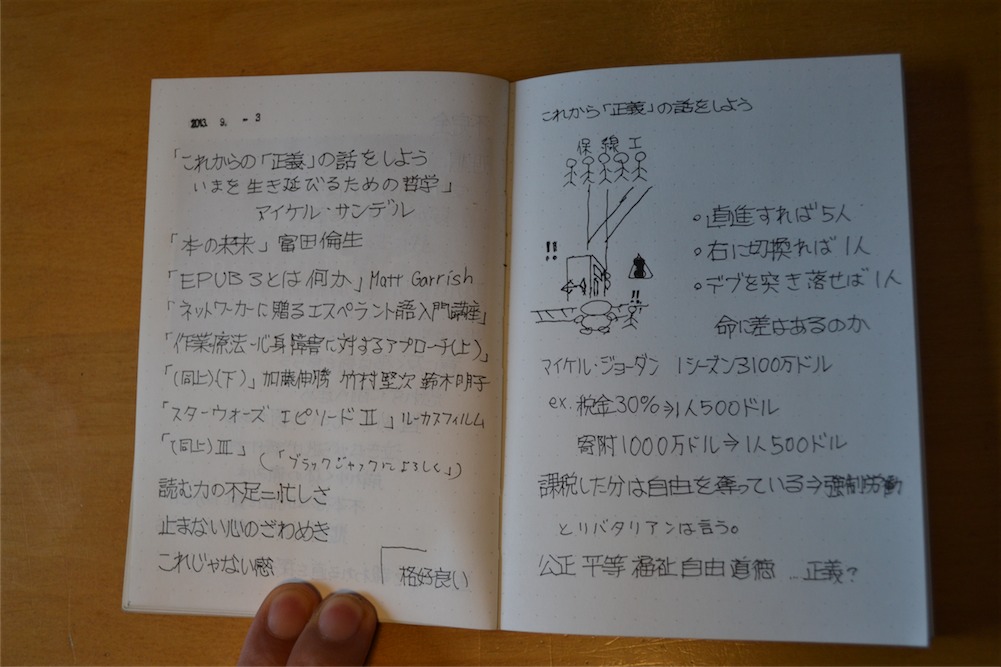 2013. 9. -3
「これからの「正義」の話をしよう
いまを生き延びるための哲学」
マイケル・サンデル
「本の未来」富田倫生
「EPUB3とは何か」Matt Garrish
「ネットワーカーに贈るエスペラント語入門講座」
「作業療法-心身障害に対するアプローチ(上)」
「(同上)(下)」加藤伸勝 竹村堅次 鈴木明子
「スターウォーズ エピソードⅡ」ルーカスフィルム
「(同上)Ⅲ」
(「ブラックジャックによろしく」)
読む力の不足=忙しさ
止まない心のざわめき
これじゃない感
格好良い
これから「正義」の話をしよう
保線工
!!
!!
○直進すれば5人
○右に切換れば1人
○デブを突き落せば1人
命に差はあるのか
マイケル・ジョーダン 1シーズン3100万ドル
ex.税金30%⇒1人500ドル
寄附1000万ドル⇒1人500ドル
課税した分は自由を奪っている⇒強制労働
とリバタリアンは言う。
公正 平等 福祉 自由 道徳 …正義?